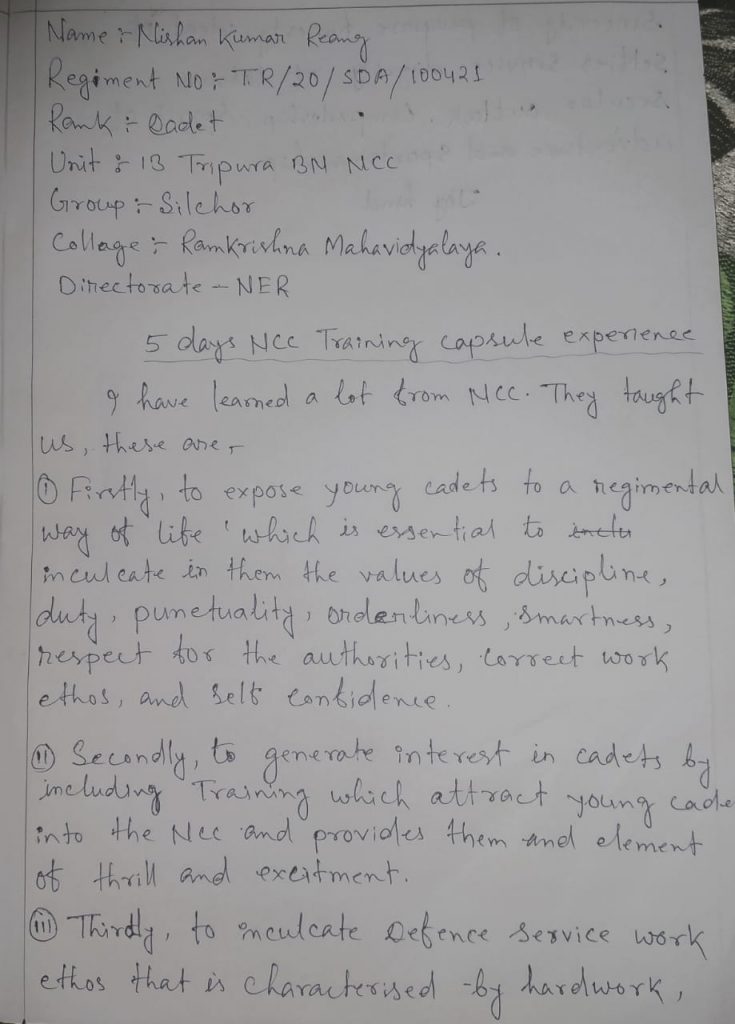 Name :- Nishan Kumar Reang
Regiment No :- TR/20/SDA/100421
Rank :- Cadet
Unit : 13 Tripura BN NCC
Group :- Silchor
Collage :- Ramkrishna Mahavidyalaya.
Directorate - NER
5 days NCC Training capsule experience
I have learned a lot from NCC. They taught
us, these are,
(i) Firstly, to expose young cadets to a regimental
way of life 'which is essential to
inculcate in them the values of discipline,
duty, punctuality, orderliness, smartness,
respect for the authorities, correct work
ethos, and self confidence.
(ii) Secondly, to generate interest in cadets by
including Training which attract young cade
into the NCC and provides them and element
of thrill and exceitment.
(iii) Thirdly, to inculcate Defence Service work
ethos that is characterised -by hardwork,